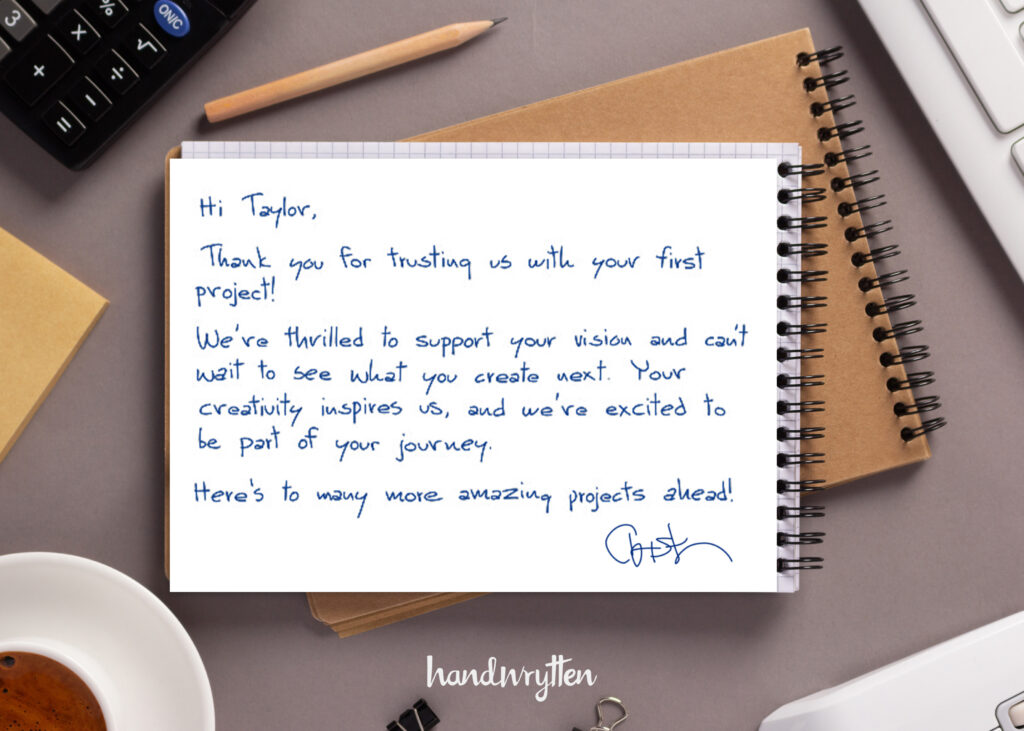 3
%
ON/C
×
√
+
÷
−
=
Hi Taylor,
Thank you for trusting us with your first
project!
We're thrilled to support your vision and can't
wait to see what you create next. Your
creativity inspires us, and we're excited to
be part of your journey.
Here's to many more amazing projects ahead!
handwrytten